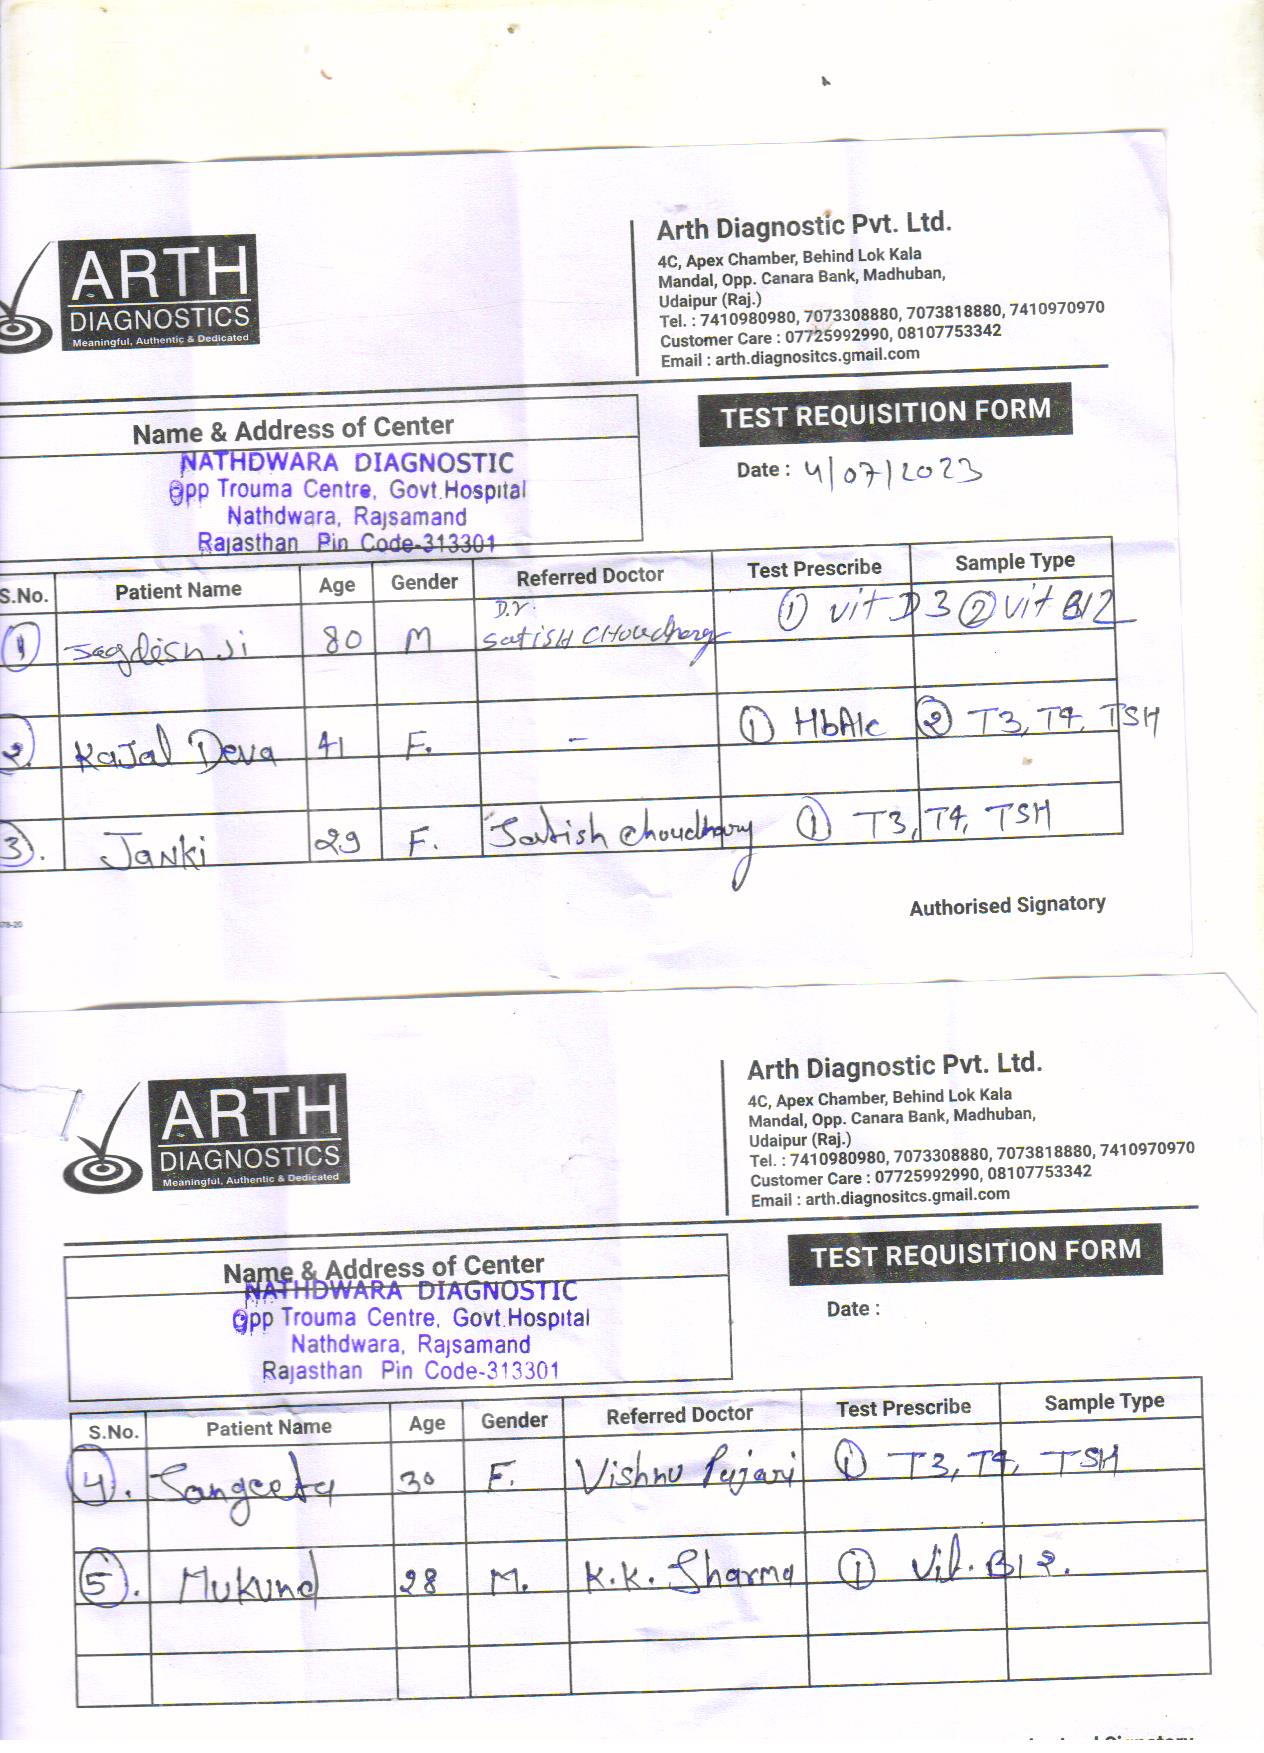 ARTH
DIAGNOSTICS
Meaningful, Authentic & Dedicated
Arth Diagnostic Pvt. Ltd.
4C, Apex Chamber, Behind Lok Kala
Mandal, Opp. Canara Bank, Madhuban,
Udaipur (Raj.)
Tel. : 7410980980, 7073308880, 7073818880, 7410970970
Customer Care : 07725992990, 08107753342
Email : arth.diagnositcs.gmail.com
Name & Address of Center
NATHDWARA DIAGNOSTIC
Opp Trouma Centre, Govt.Hospital
Nathdwara, Rajsamand
Rajasthan Pin Code-313301
TEST REQUISITION FORM
Date : 4/07/2023
S.No. Patient Name Age Gender Referred Doctor Test Prescribe Sample Type
1 Jagdish Ji 80 M D.r. Satish Choudhary ① vit D3 ② vit B12
2. Kajal Deva 41 F. - ① HbA1c ② T3, T4, TSH
3. Janki 29 F. Satish Choudhary ① T3, T4, TSH
Authorised Signatory
ARTH
DIAGNOSTICS
Meaningful, Authentic & Dedicated
Arth Diagnostic Pvt. Ltd.
4C, Apex Chamber, Behind Lok Kala
Mandal, Opp. Canara Bank, Madhuban,
Udaipur (Raj.)
Tel. : 7410980980, 7073308880, 7073818880, 7410970970
Customer Care : 07725992990, 08107753342
Email : arth.diagnositcs.gmail.com
Name & Address of Center
NATHDWARA DIAGNOSTIC
Opp Trouma Centre, Govt.Hospital
Nathdwara, Rajsamand
Rajasthan Pin Code-313301
TEST REQUISITION FORM
Date :
S.No. Patient Name Age Gender Referred Doctor Test Prescribe Sample Type
4. Sangeeta 30 F. Vishnu Pujari ① T3, T4, TSH
5. Mukund 28 M. K.K. Sharma ① Vit. B12.